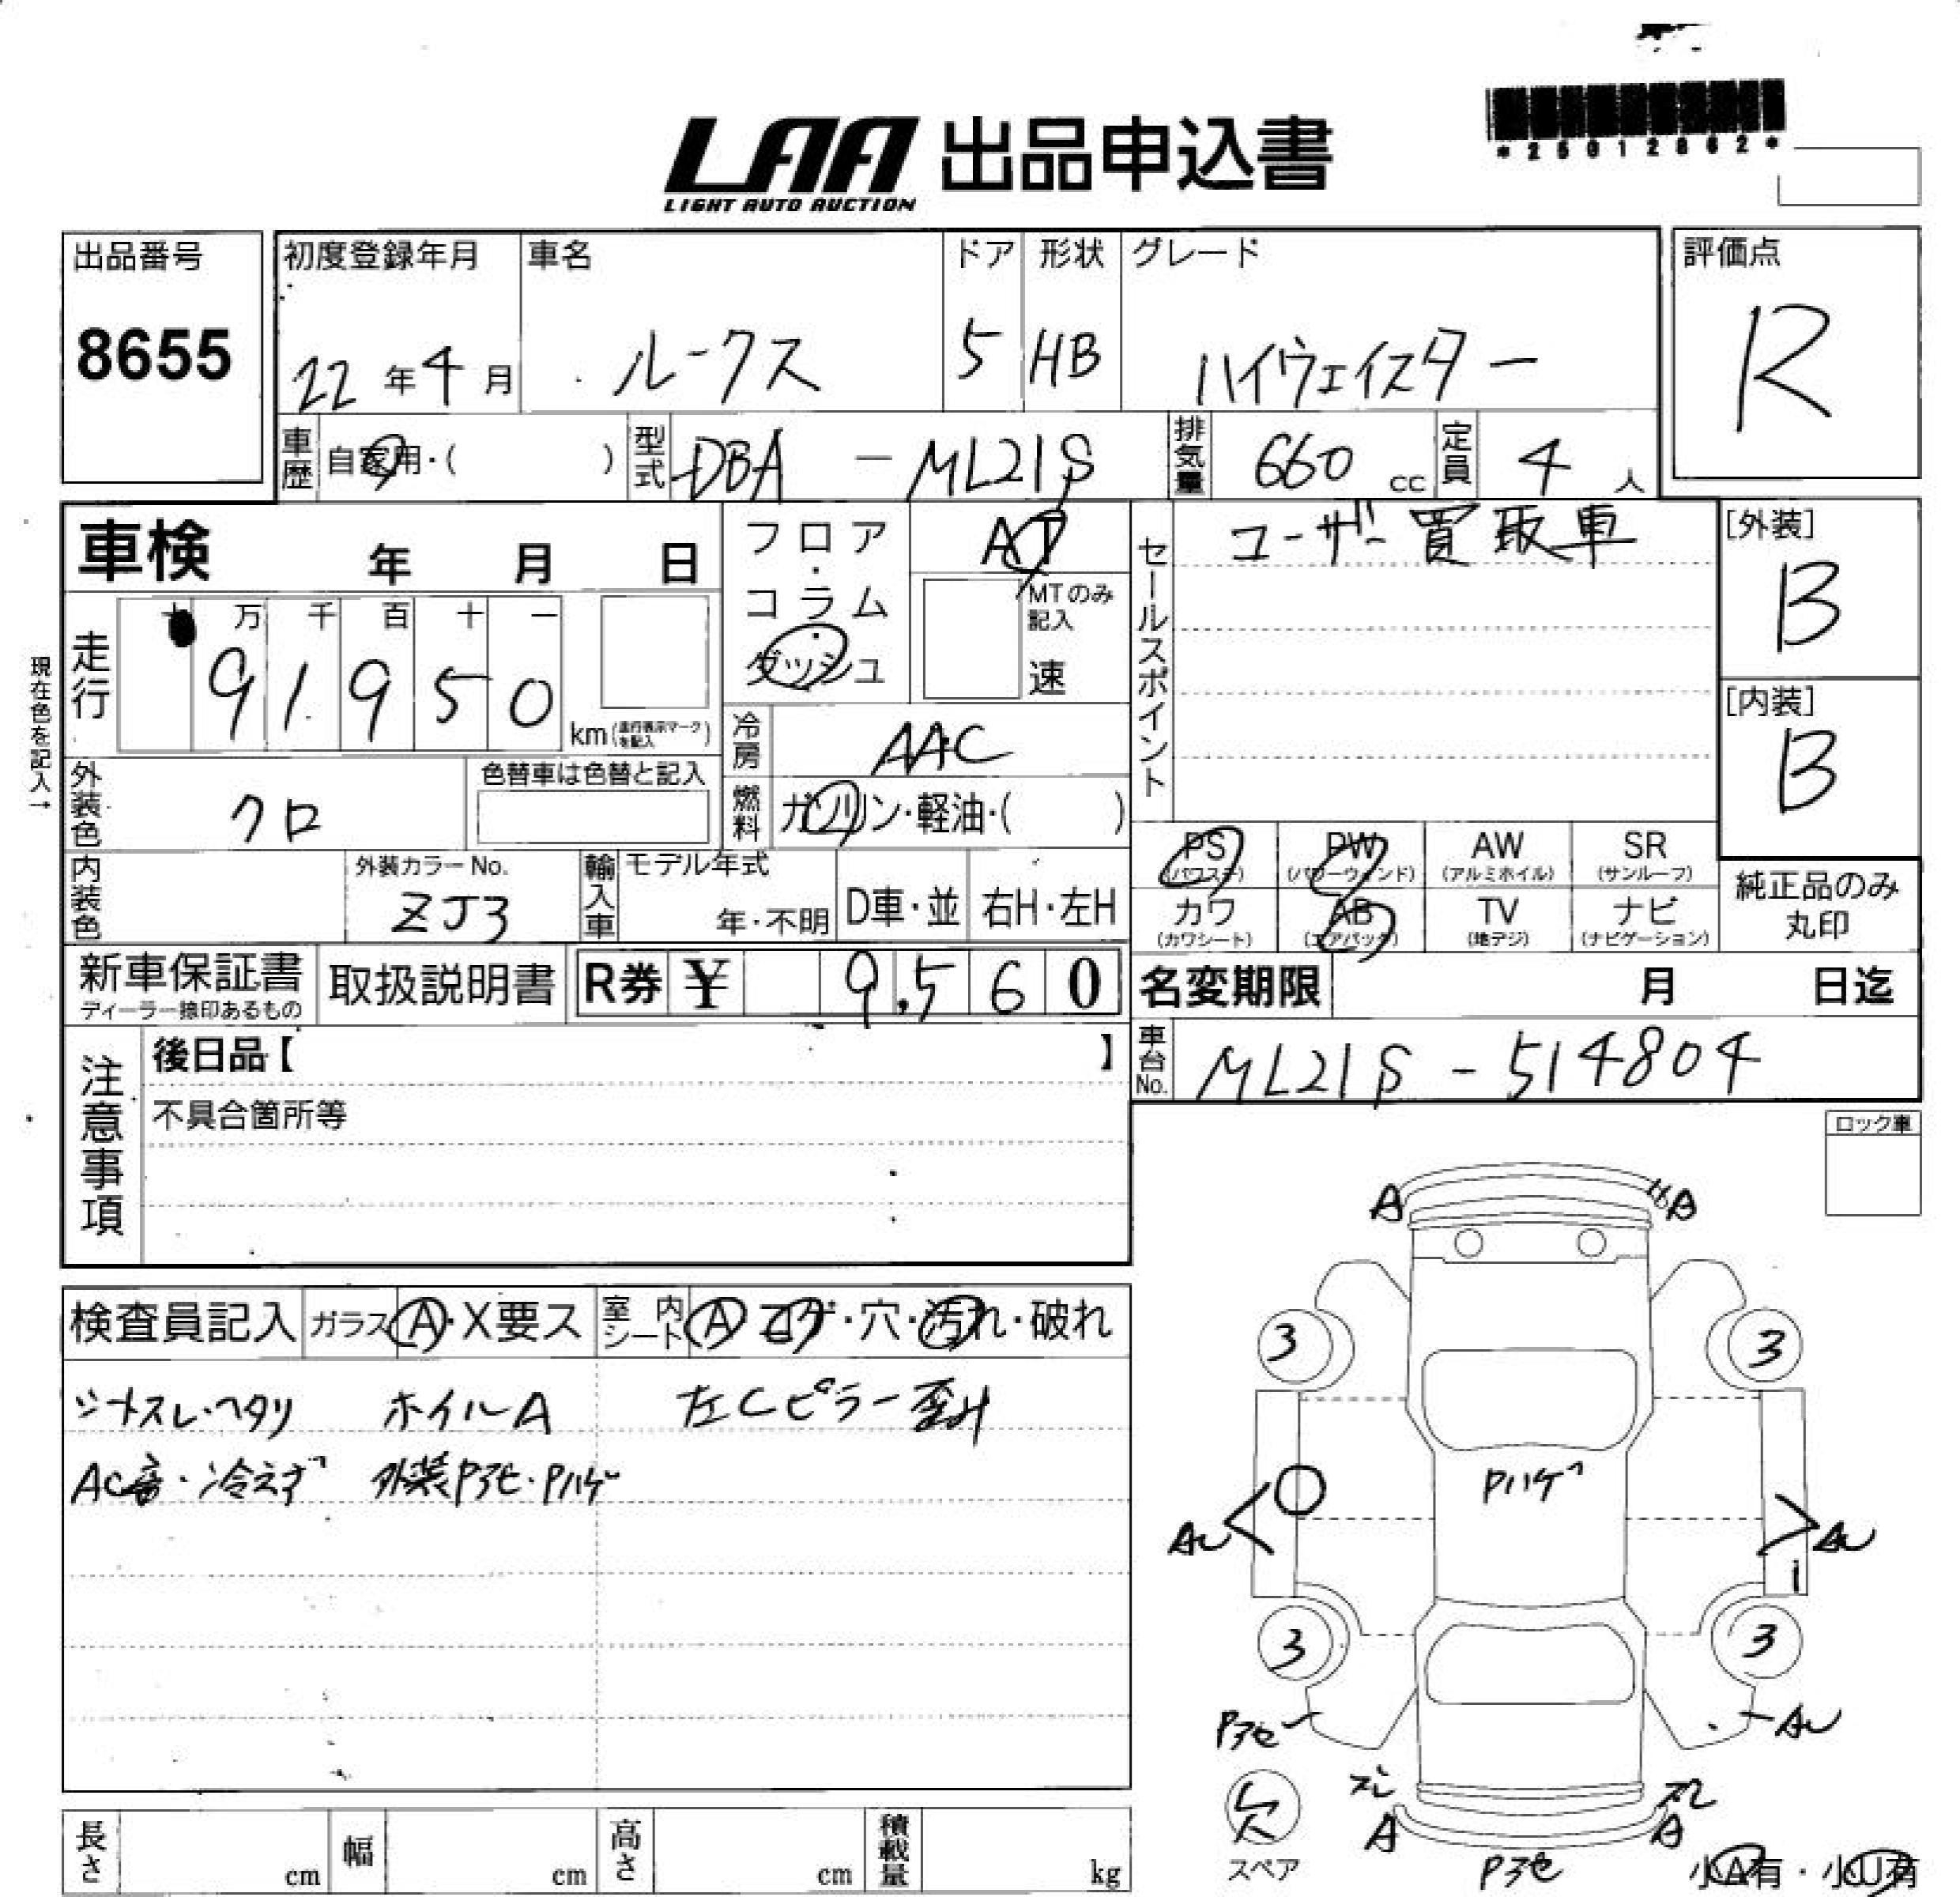 *25012862*
LAA 出品申込書
LIGHT AUTO AUCTION
出品番号 初度登録年月 車名 ドア 形状 グレード 評価点
8655 22年4月 ルークス 5 HB ハイウェイスター R
車歴 自家用・( ) 型式 DBA-ML21S 排気量 660 cc 定員 4 人
車検 年 月 日 フロア・コラム・ダッシュ AT セールスポイント ユーザー買取車 [外装] B
MTのみ記入 速
現在色を記入→
走行 十 万 千 百 十 一
91950 km(走行表示マークを記入) [内装] B
冷房 AAC
外装色 クロ 色替車は色替と記入 燃料 ガソリン・軽油・( )
PS (パワステ) PW (パワーウィンド) AW (アルミホイル) SR (サンルーフ)
内装色 外装カラーNo. ZJ3 輸入車 モデル年式 年・不明 D車・並 右H・左H
カワ (カワシート) AB (エアバック) TV (地デジ) ナビ (ナビゲーション) 純正品のみ丸印
新車保証書 ディーラー捺印あるもの 取扱説明書 R券 ¥ 9,560 名変期限 月 日迄
注意事項 後日品【 】 車台No. ML21S-514804
不具合箇所等
ロック車
検査員記入 ガラス A・X要ス 室内シート A コゲ・穴・汚れ・破れ
シートスレ・ヘタリ ホイルA 左Cピラー歪み
AC音・冷えず 外装Pアセ・Pハゲ
A A
3 3
Pハゲ
AU AU
i
3 3
Pアセ AU
ズレ ズレ
欠 A A
スペア Pアセ 小A有・小U有
長さ cm 幅 cm 高さ cm 積載量 kg